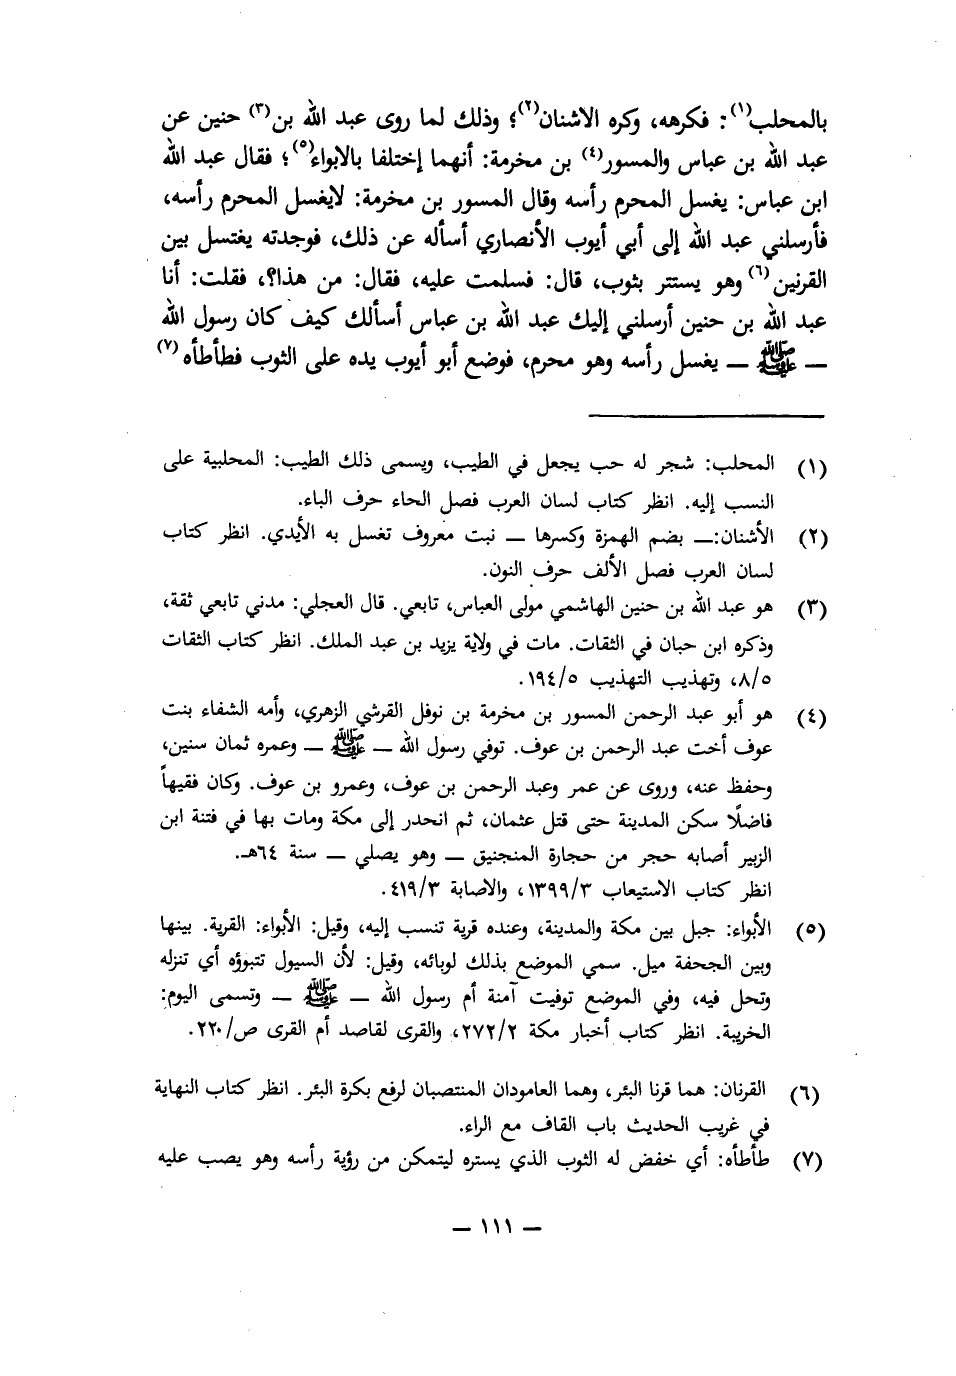 بالمحلب(١): فكرهه، وكره الاشنان(٢)؛ وذلك لما روى عبد الله بن(٣) حنين عن
عبد الله بن عباس والمسور(٤) بن مخرمة: أنهما إختلفا بالابواء(٥)؛ فقال عبد الله
ابن عباس: يغسل المحرم رأسه وقال المسور بن مخرمة: لايغسل المحرم رأسه،
فأرسلني عبد الله إلى أبي أيوب الأنصاري أسأله عن ذلك، فوجدته يغتسل بين
القرنين(٦) وهو يستتر بثوب، قال: فسلمت عليه، فقال: من هذا؟، فقلت: أنا
عبد الله بن حنين أرسلني إليك عبد الله بن عباس أسألك كيف كان رسول الله
— ﷺ — يغسل رأسه وهو محرم، فوضع أبو أيوب يده على الثوب فطأطأه(٧)
(١) المحلب: شجر له حب يجعل في الطيب، ويسمى ذلك الطيب: المحلبية على
النسب إليه. انظر كتاب لسان العرب فصل الحاء حرف الباء.
(٢) الأشنان:— بضم الهمزة وكسرها — نبت معروف تغسل به الأيدي. انظر كتاب
لسان العرب فصل الألف حرف النون.
(٣) هو عبد الله بن حنين الهاشمي مولى العباس، تابعي. قال العجلي: مدني تابعي ثقة،
وذكره ابن حبان في الثقات. مات في ولاية يزيد بن عبد الملك. انظر كتاب الثقات
٨/٥، وتهذيب التهذيب ١٩٤/٥.
(٤) هو أبو عبد الرحمن المسور بن مخرمة بن نوفل القرشي الزهري، وأمه الشفاء بنت
عوف أخت عبد الرحمن بن عوف. توفي رسول الله — ﷺ — وعمره ثمان سنين،
وحفظ عنه، وروى عن عمر وعبد الرحمن بن عوف، وعمرو بن عوف. وكان فقيهاً
فاضلًا سكن المدينة حتى قتل عثمان، ثم انحدر إلى مكة ومات بها في فتنة ابن
الزبير أصابه حجر من حجارة المنجنيق — وهو يصلي — سنة ٦٤هـ.
انظر كتاب الاستيعاب ١٣٩٩/٣، والاصابة ٤١٩/٣.
(٥) الأبواء: جبل بين مكة والمدينة، وعنده قرية تنسب إليه، وقيل: الأبواء: القرية. بينها
وبين الجحفة ميل. سمي الموضع بذلك لوبائه، وقيل: لأن السيول تتبوؤه أي تنزله
وتحل فيه، وفي الموضع توفيت آمنة أم رسول الله — ﷺ — وتسمى اليوم:
الخريبة. انظر كتاب أخبار مكة ٢٧٢/٢، والقرى لقاصد أم القرى ص/٢٢٠.
(٦) القرنان: هما قرنا البئر، وهما العامودان المنتصبان لرفع بكرة البئر. انظر كتاب النهاية
في غريب الحديث باب القاف مع الراء.
(٧) طأطأه: أي خفض له الثوب الذي يستره ليتمكن من رؤية رأسه وهو يصب عليه
— ١١١ —